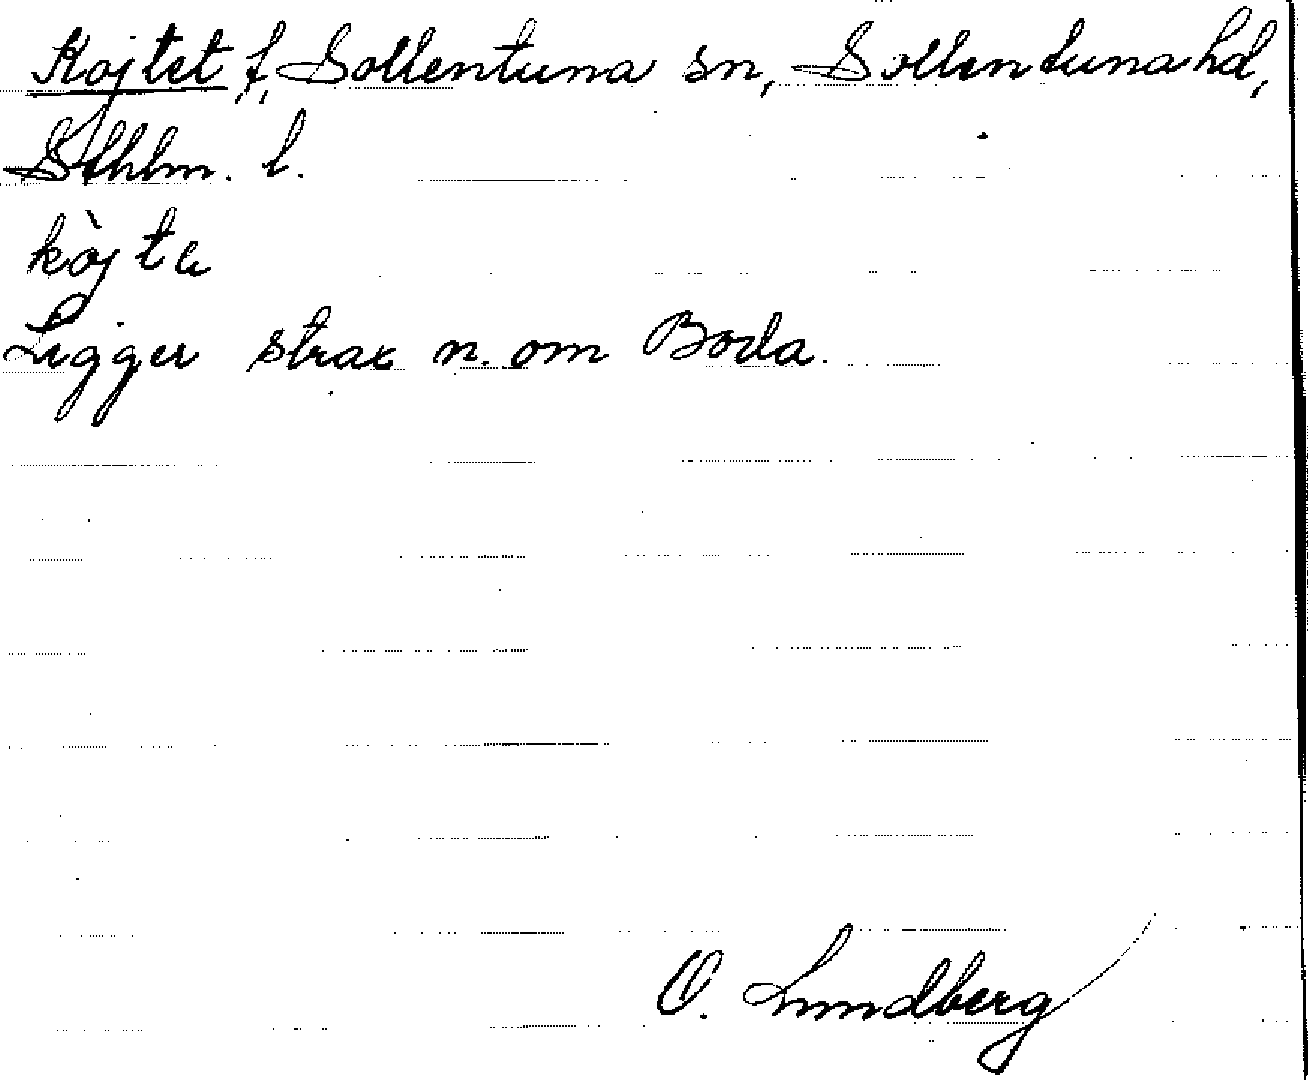 Kojtet f, Sollentuna sn, Sollentuna hd,
Sthlm. l.
kòjte
Ligger strax n. om Boda.
O. Lundberg